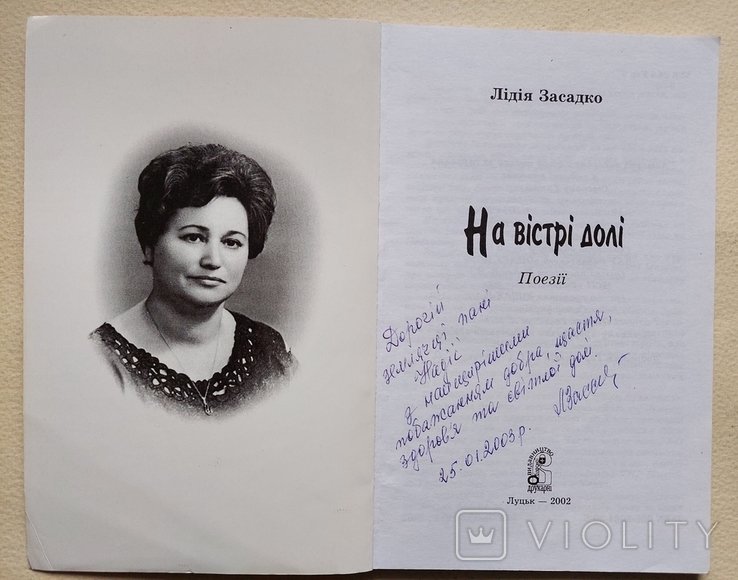 Лідія Засадко
На вістрі долі
Поезії
Дорогій
землячці пані
Надії
з найщирішими
побажаннями добра, щастя,
здоров'я та світлої долі.
25.01.2003 р.
видавництво
друкарні
Луцьк — 2002
VIOLITY